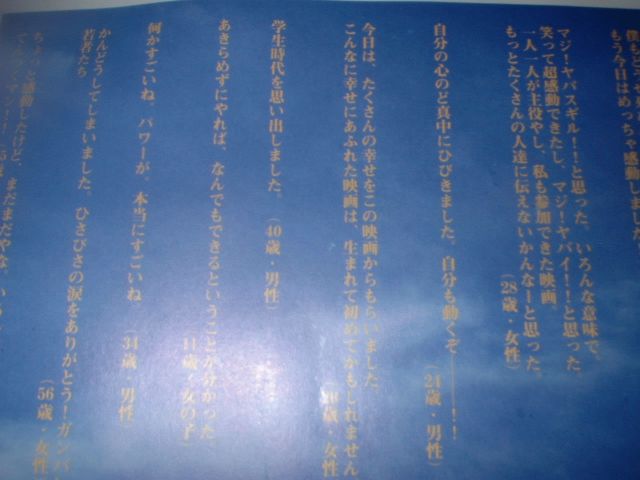 もう今日はめっちゃ感動しました
マジ！ヤバスギル！！と思った。いろんな意味で。
笑って超感動できたし、マジ！ヤバイ！！と思った。
一人一人が主役やし、私も参加できた映画。
もっとたくさんの人達に伝えないかんなーと思った。
（28歳・女性）
自分の心のど真中にひびきました。自分も動くぞ———！！
（21歳・男性）
今日は、たくさんの幸せをこの映画からもらいました。
こんなに幸せにあふれた映画は、生まれて初めてかもしれません
歳・女性
学生時代を思い出しました。（40歳・男性）
あきらめずにやれば、なんでもできるということが分かった
（11歳・女の子）
何かすごいね。パワーが、本当にすごいね。（34歳・男性
若者たち
かんどうしてしまいました。ひさびさの涙をありがとう！ガンバ
（56歳・女性
ちょっと感動したけど、まだまだやな。